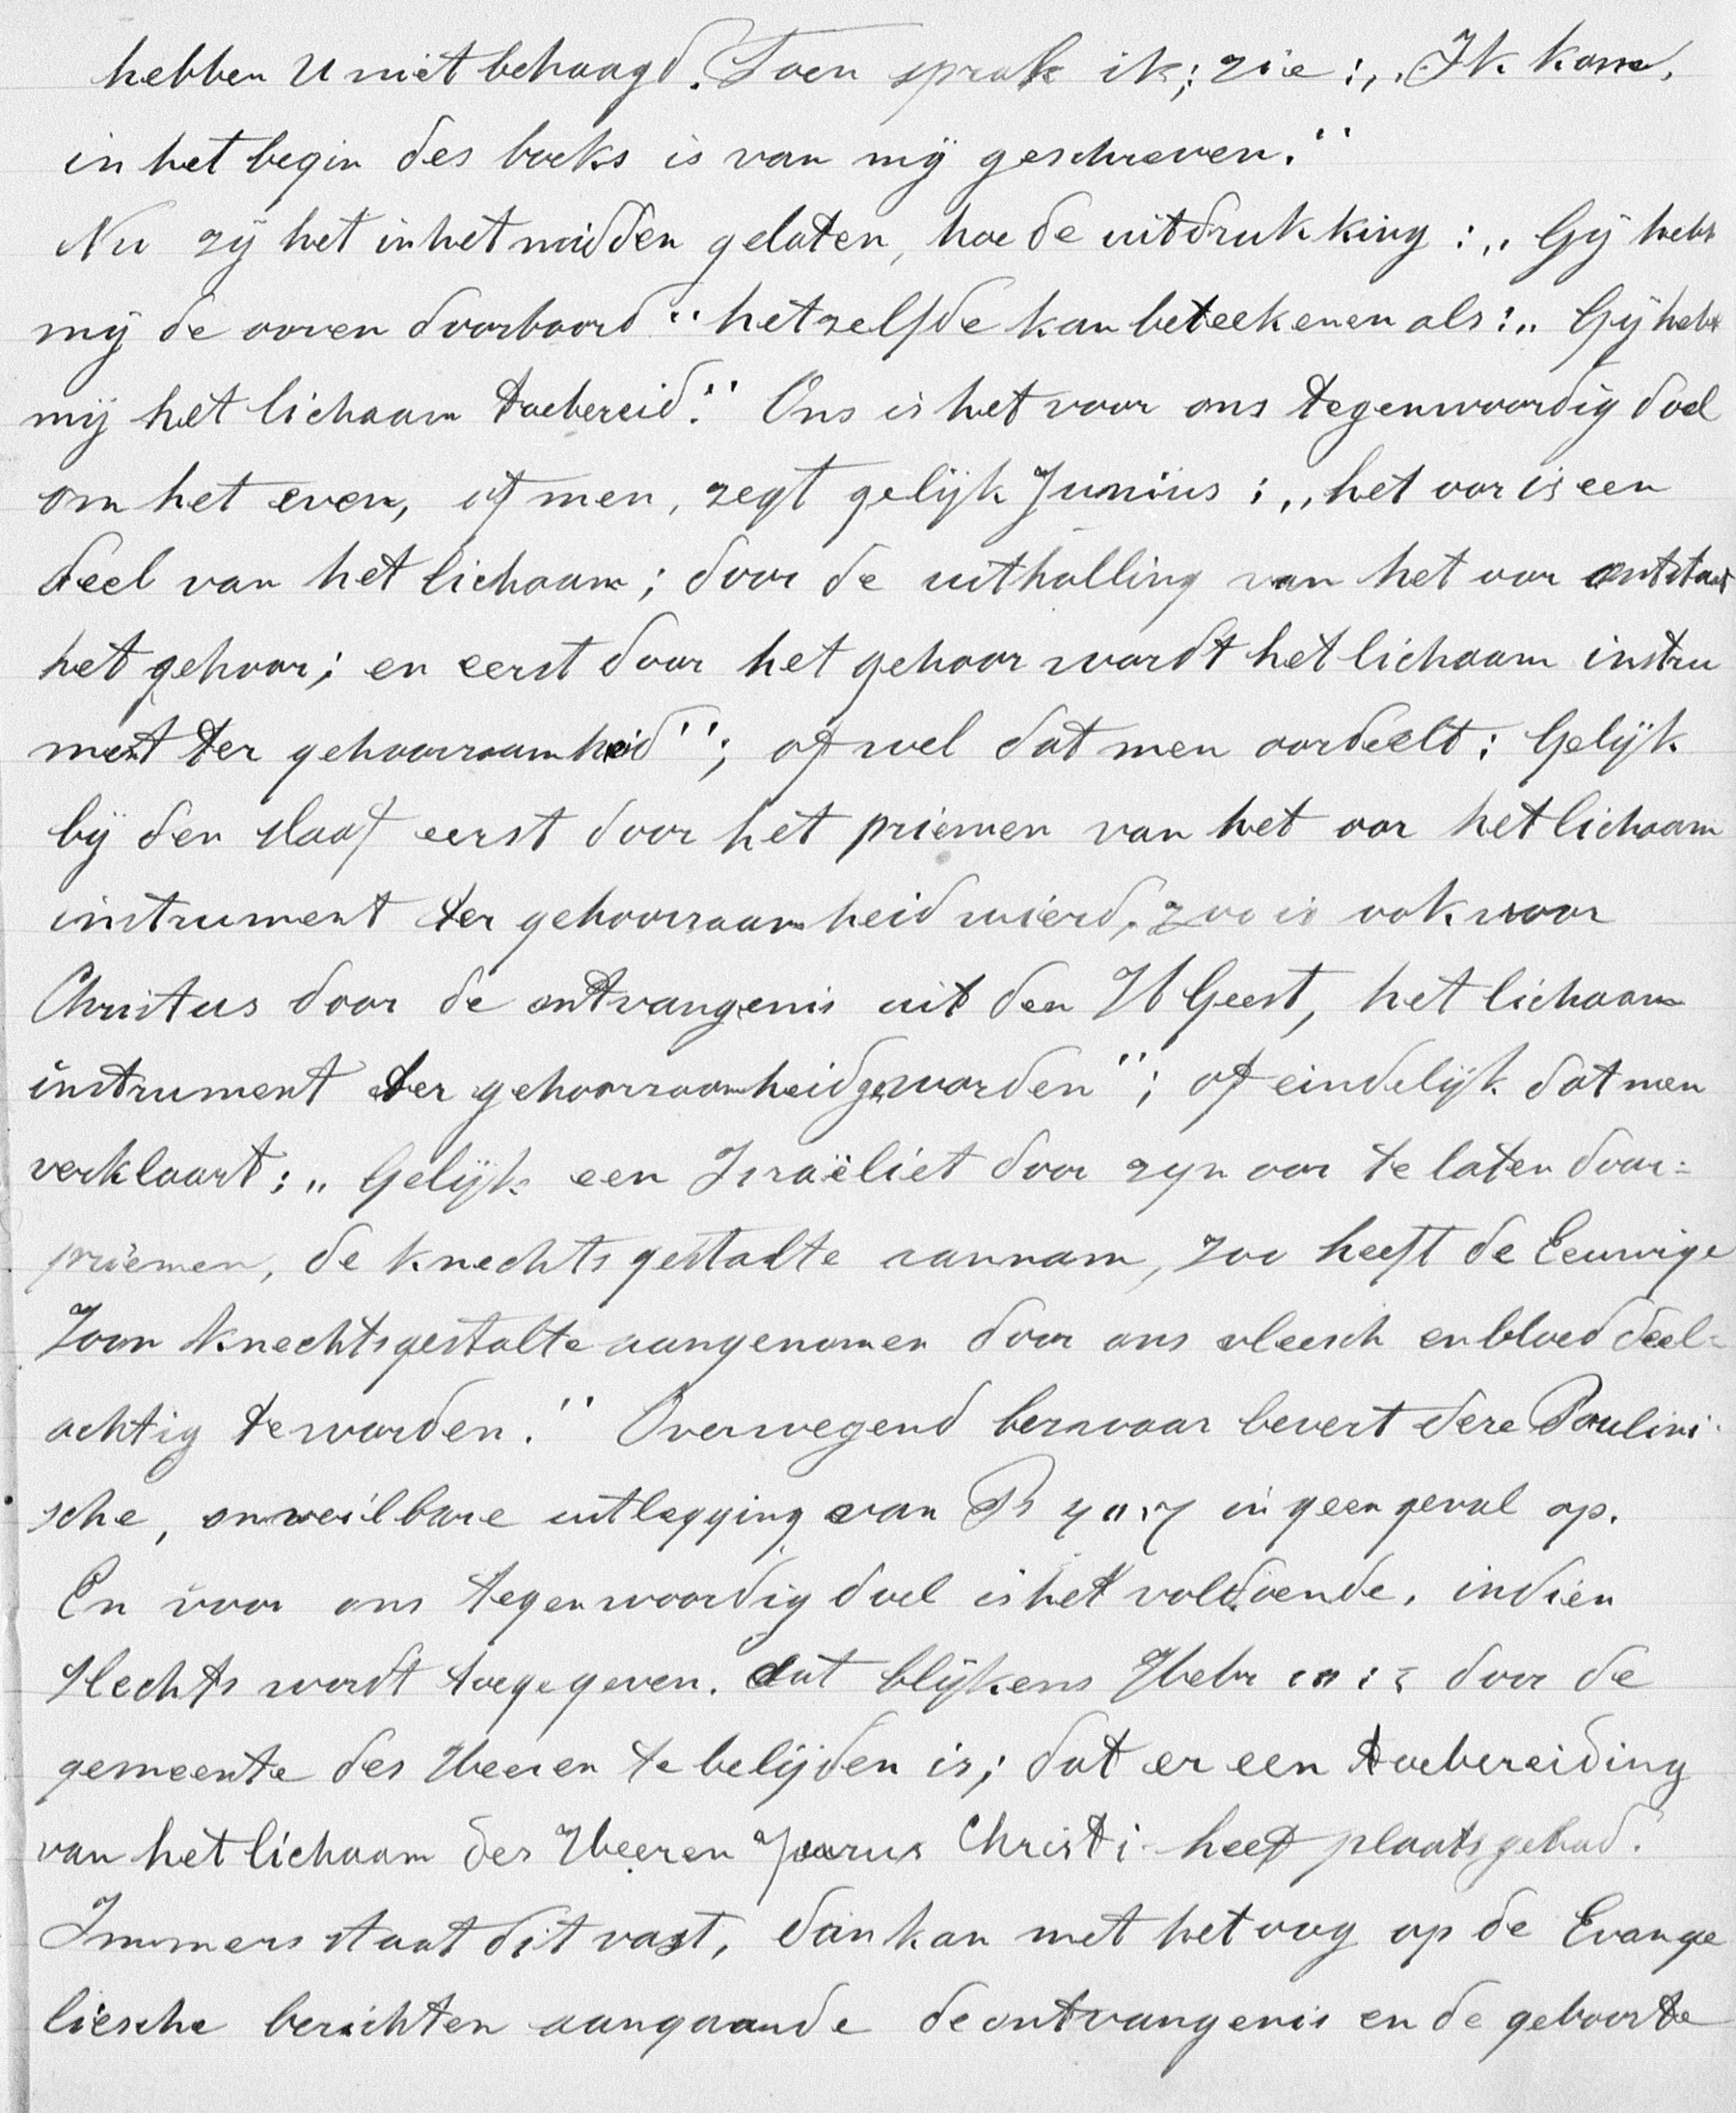 hebben U niet behaagd. Toen sprak ik; zie: „Ik kome,
in het begin des boeks is van mij geschreven."
Nu zij het in het midden gelaten, hoe de uitdrukking: „Gij hebt
mij de ooren doorboord" hetzelfde kan beteekenen als: „Gij hebt
mij het lichaam toebereid." Ons is het voor ons tegenwoordig doel
om het even, of men, zegt gelijk Junius: „het oor is een
deel van het lichaam; door de uitholling van het oor ontstaat
het gehoor; en eerst door het gehoor wordt het lichaam instru
ment ter gehoorzaamheid"; of wel dat men oordeelt: Gelijk
bij den slaaf eerst door het priemen van het oor het lichaam
instrument ter gehoorzaamheid wierd, zoo is ook voor
Christus door de ontvangenis uit den H Geest, het lichaam
instrument der gehoorzaamheid geworden"; of eindelijk dat men
verklaart: „Gelijk een Israëliet door zijn oor te laten door=
priemen, de knechtsgestalte aannam, zoo heeft de Eeuwige
Zoon knechtsgestalte aangenomen door ons vleesch en bloed deel=
achtig te worden." Overwegend bezwaar levert deze Paulini-
sche, onfeilbare uitlegging van Ps in geen geval op.
En voor ons tegenwoordig doel is het voldoende, indien
slechts wordt toegegeven. dat blijkens Hebr door de
gemeente des Heeren te belijden is; dat er een toebereiding
van het lichaam des Heeren Jezus Christi heeft plaats gehad.
Immers staat dit vast, dan kan met het oog op de Evange
liesche berichten aangaande de ontvangenis en de geboorte